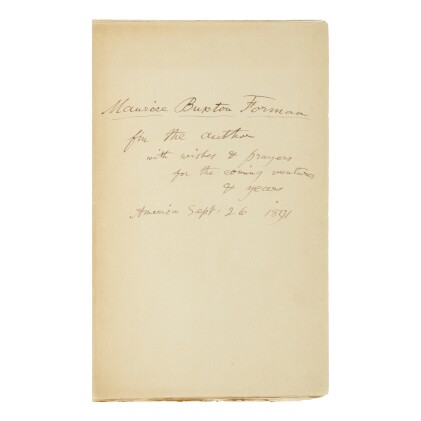 Maurice Buxton Forman
fm the author
with wishes & prayers
for the coming ventures
& years
America Sept. 26 1891